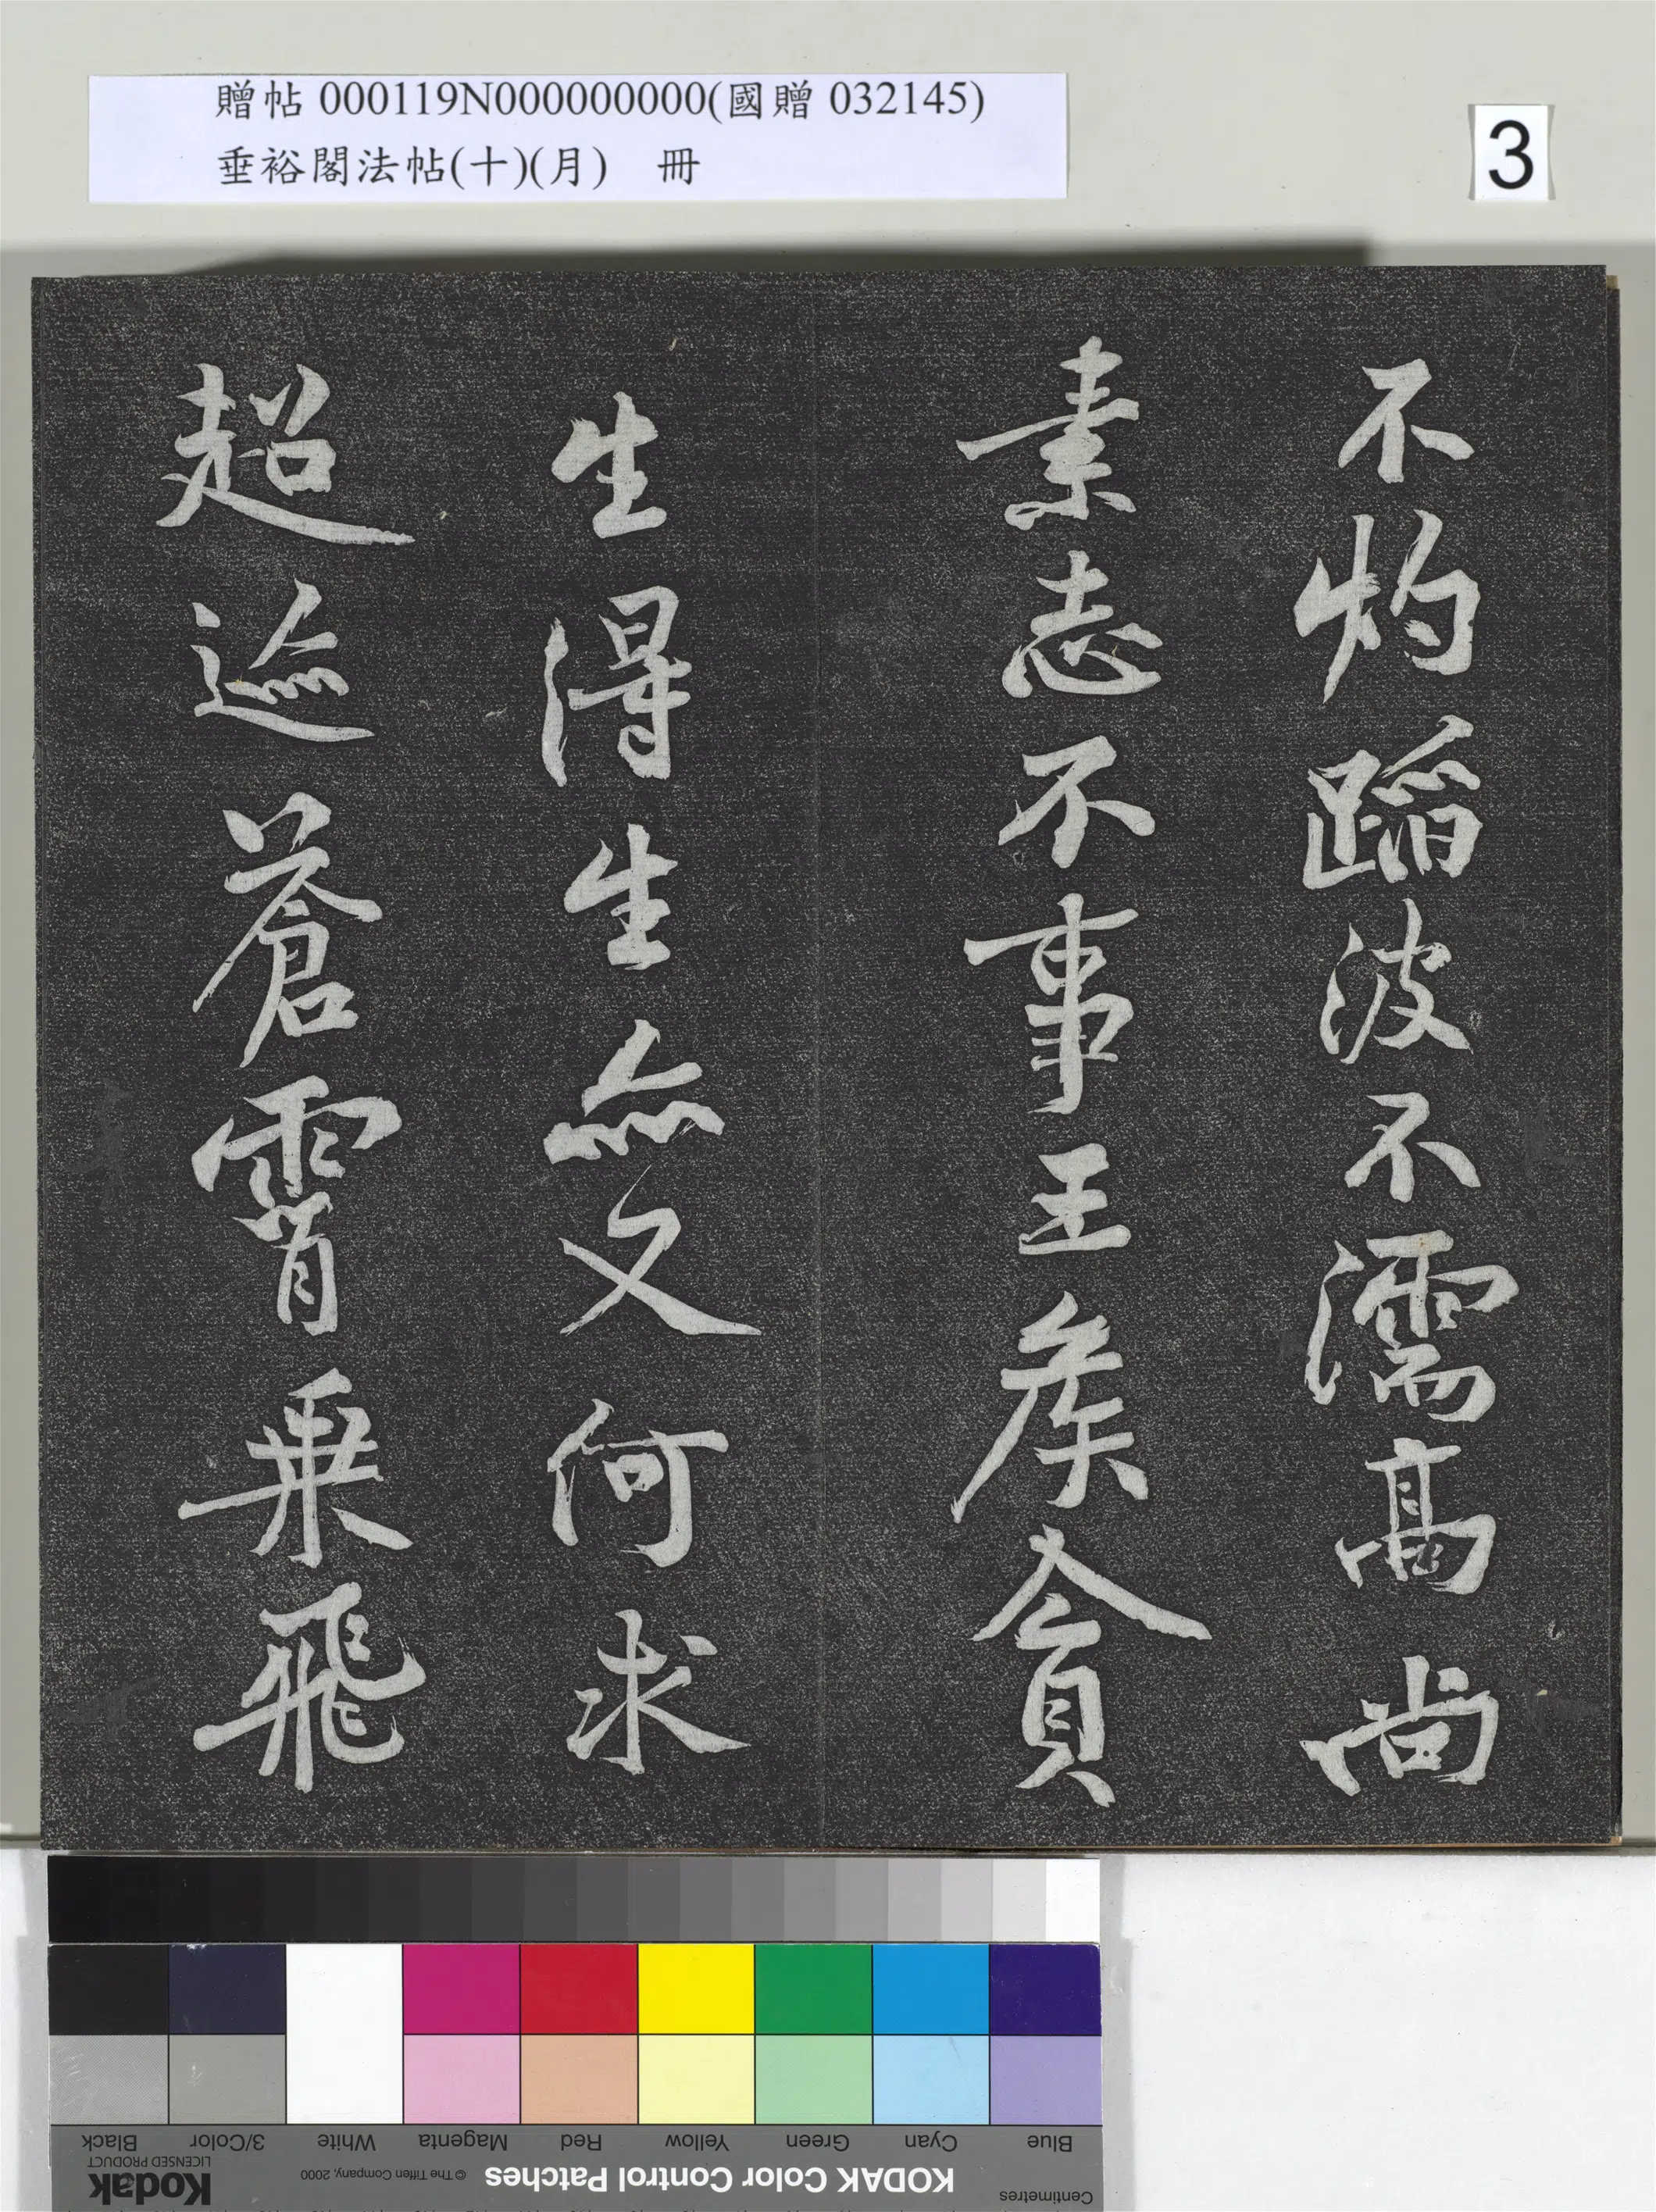 贈帖 000119N000000000(國贈 032145)
垂裕閣法帖(十)(月) 冊
3
不灼蹈波不濡高尚
素志不事王矦貪
生得生亦又何求
超迹蒼霄乗飛
Centimetres
Blue Cyan Green Yellow Red Magenta White 3/Color Black
KODAK Color Control Patches © The Tiffen Company, 2000 Kodak
LICENSED PRODUCT